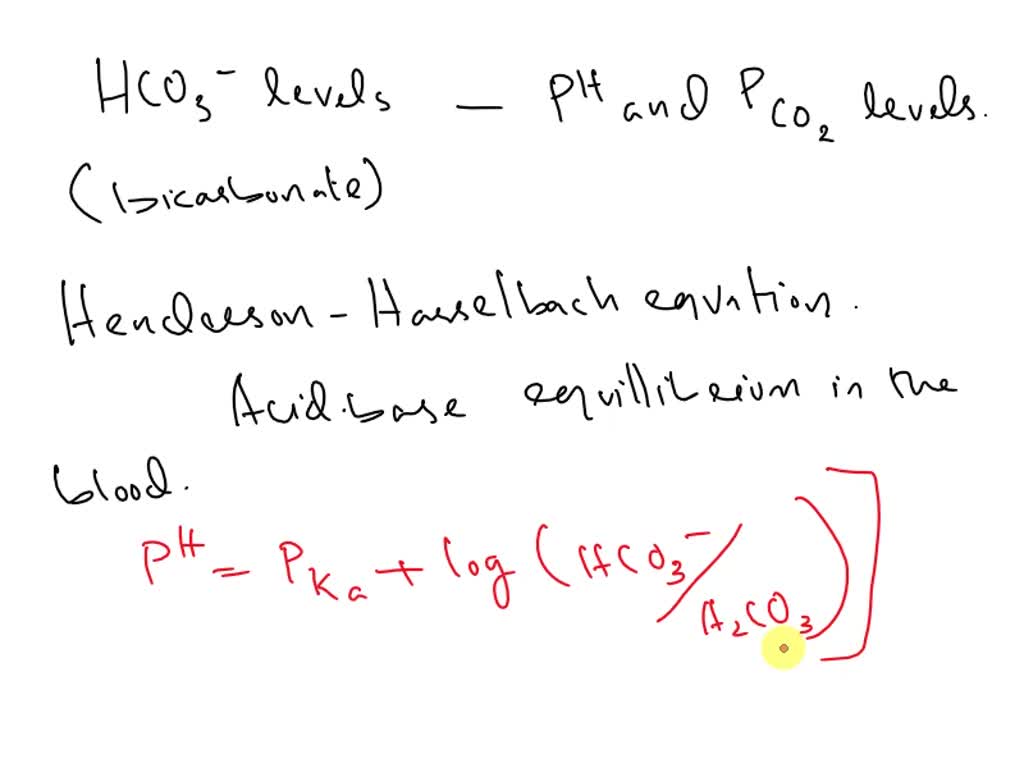 HCO₃⁻ levels — PH and PCO₂ levels.
(bicarbonate)
Henderson - Hasselbach equation.
Acid.base equillibrium in the
blood.
PH = PKa + log (HCO₃⁻/H₂CO₃)]